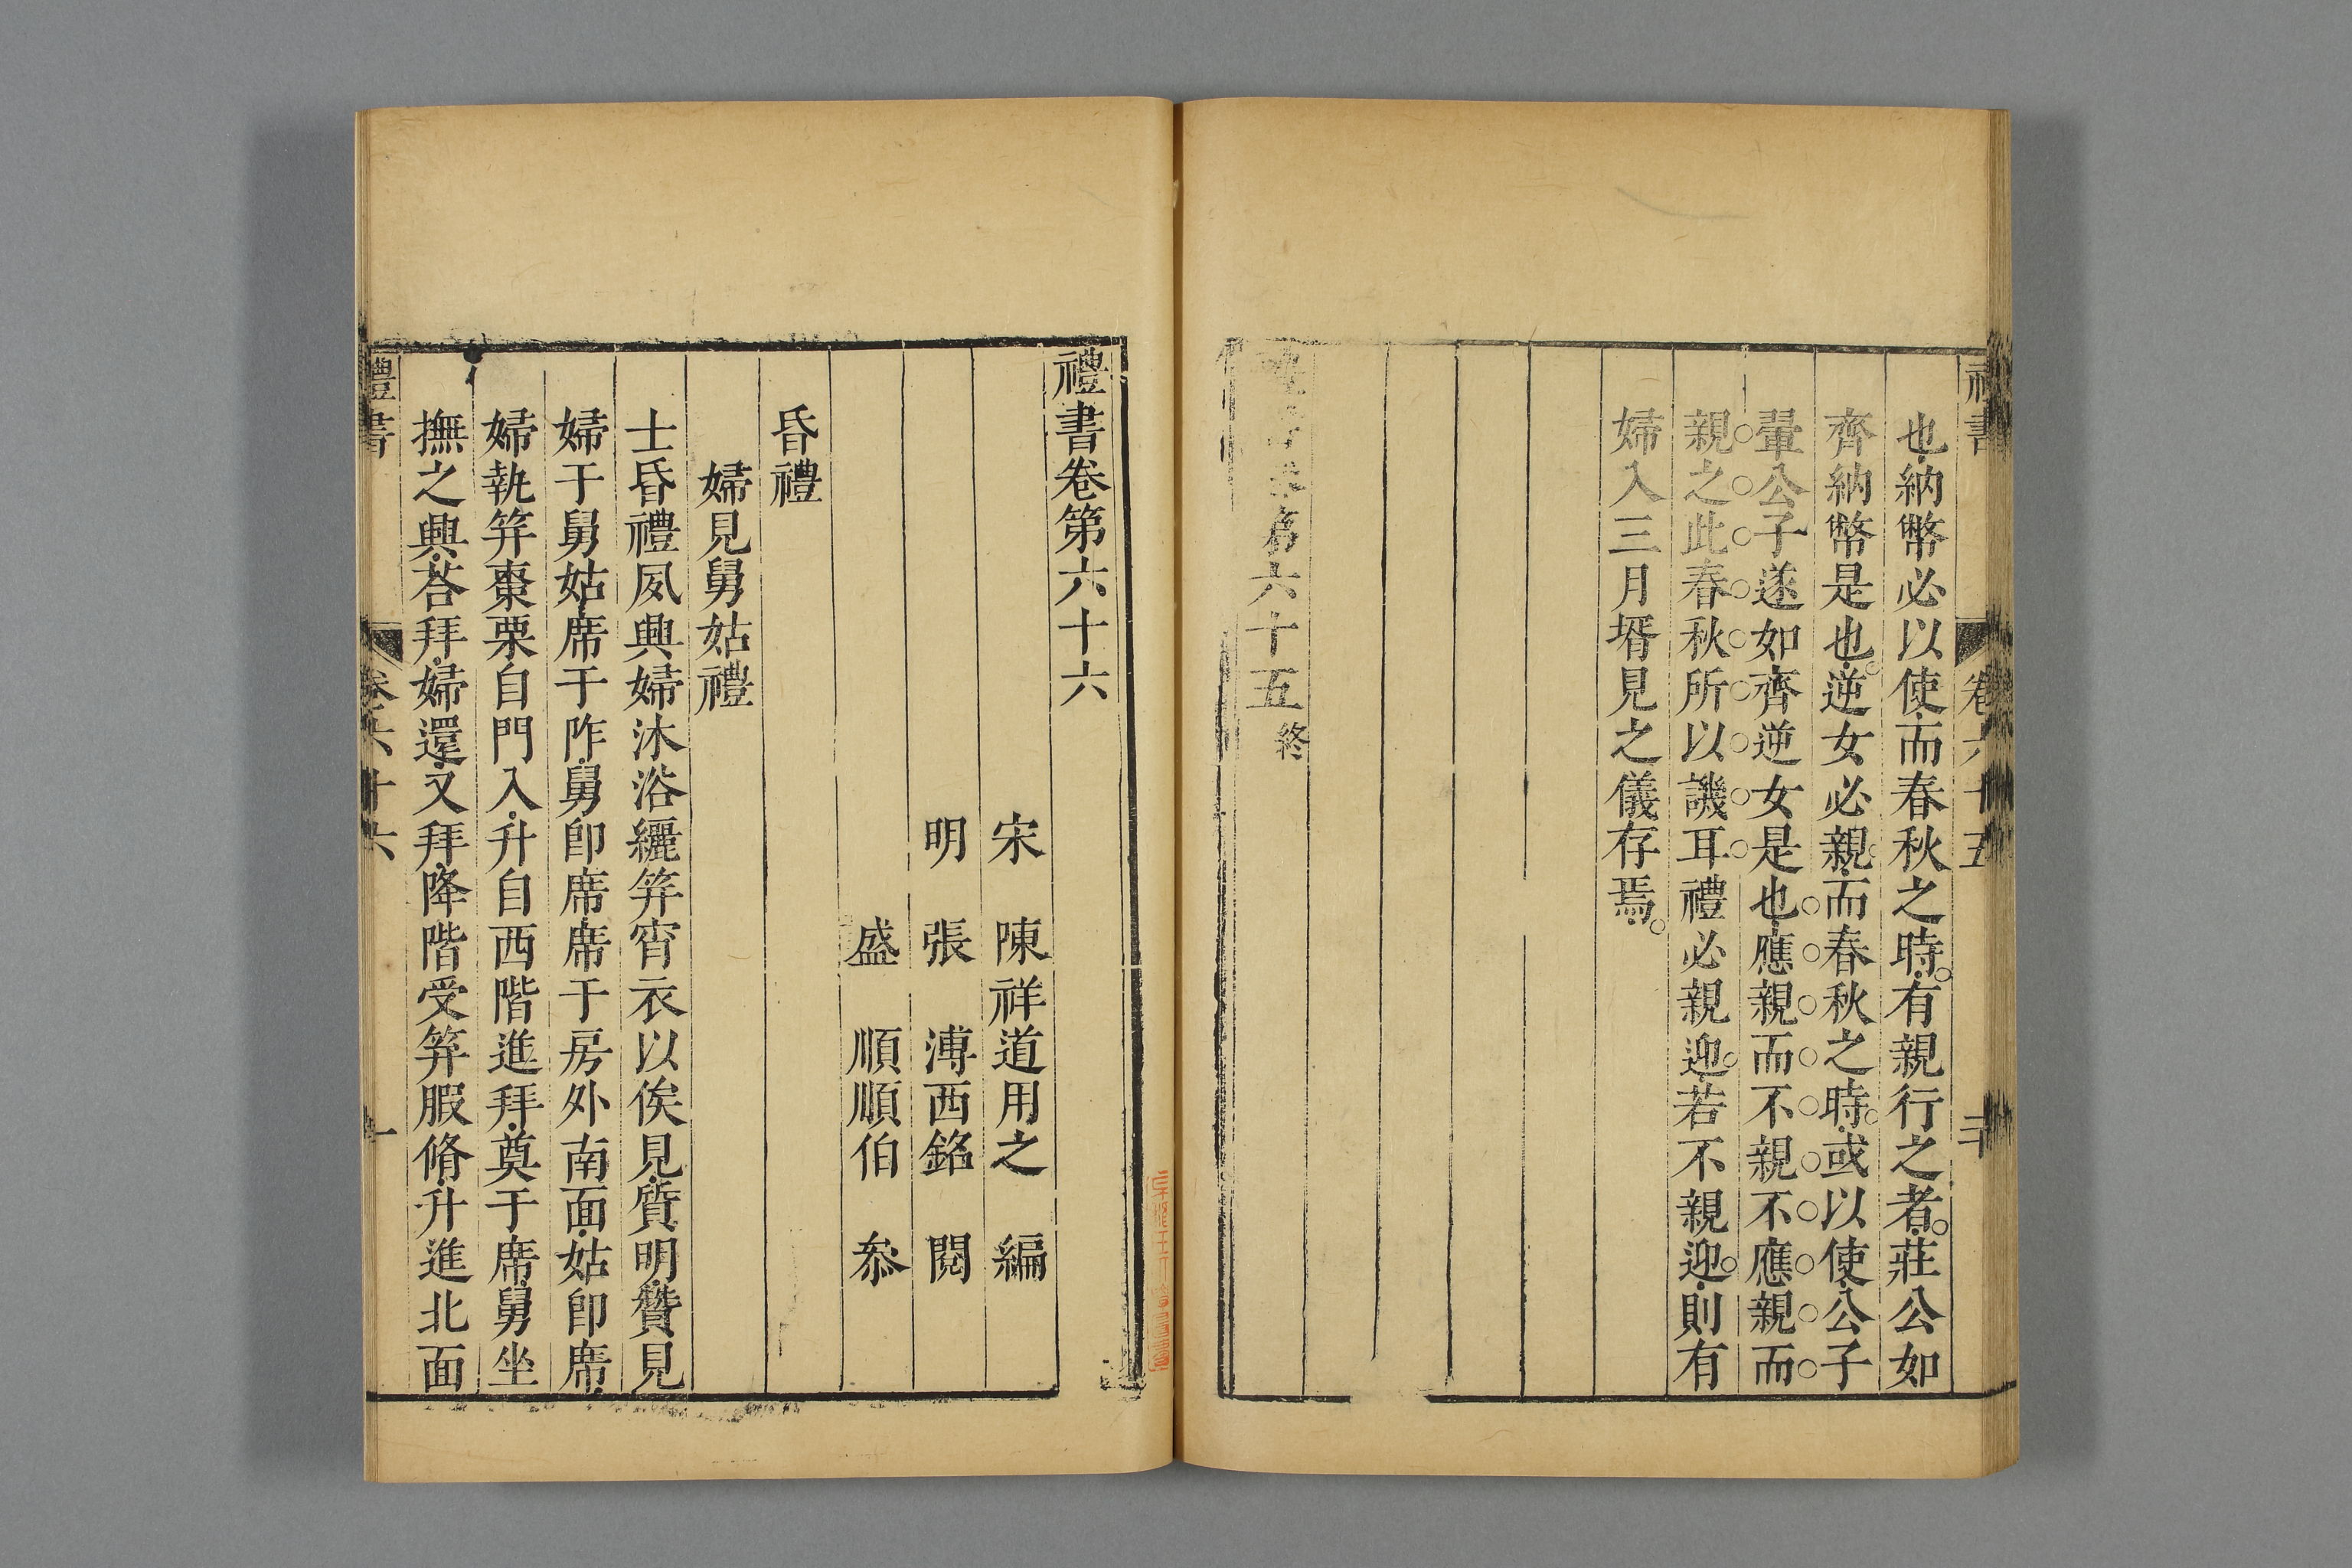 禮書 卷六十五 二十
也納幣必以使而春秋之時有親行之者莊公如
齊納幣是也逆女必親而春秋之時或以使公子
翬公子遂如齊逆女是也應親而不親不應親而
親之此春秋所以譏耳禮必親迎若不親迎則有
婦入三月壻見之儀存焉
禮書卷第六十五終
禮書卷第六十六
宋 陳祥道用之 編
明 張 溥西銘 閱
盛 順順伯 叅
昏禮
婦見舅姑禮
士昏禮夙興婦沐浴纚笄宵衣以俟見質明贊見
婦于舅姑席于阼舅卽席席于房外南面姑卽席
婦執笲棗栗自門入升自西階進拜奠于席舅坐
撫之興荅拜婦還又拜降階受笲腶脩升進北面
禮書 卷六十六 一